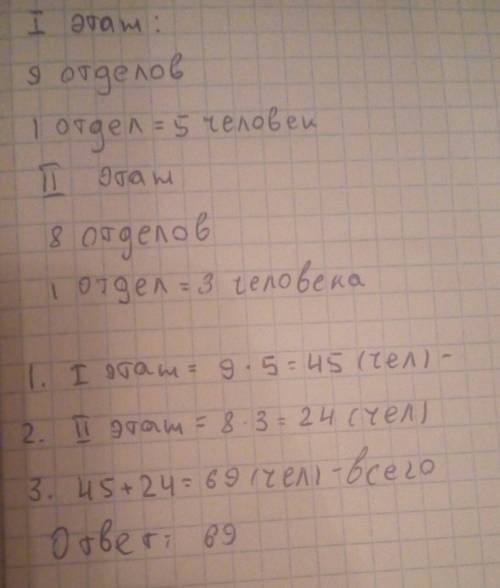 I этаж:
9 отделов
1 отдел = 5 человек
II этаж
8 отделов
1 отдел = 3 человека
1. I этаж = 9 · 5 = 45 (чел) -
2. II этаж = 8 · 3 = 24 (чел)
3. 45 + 24 = 69 (чел) - всего
Ответ: 69